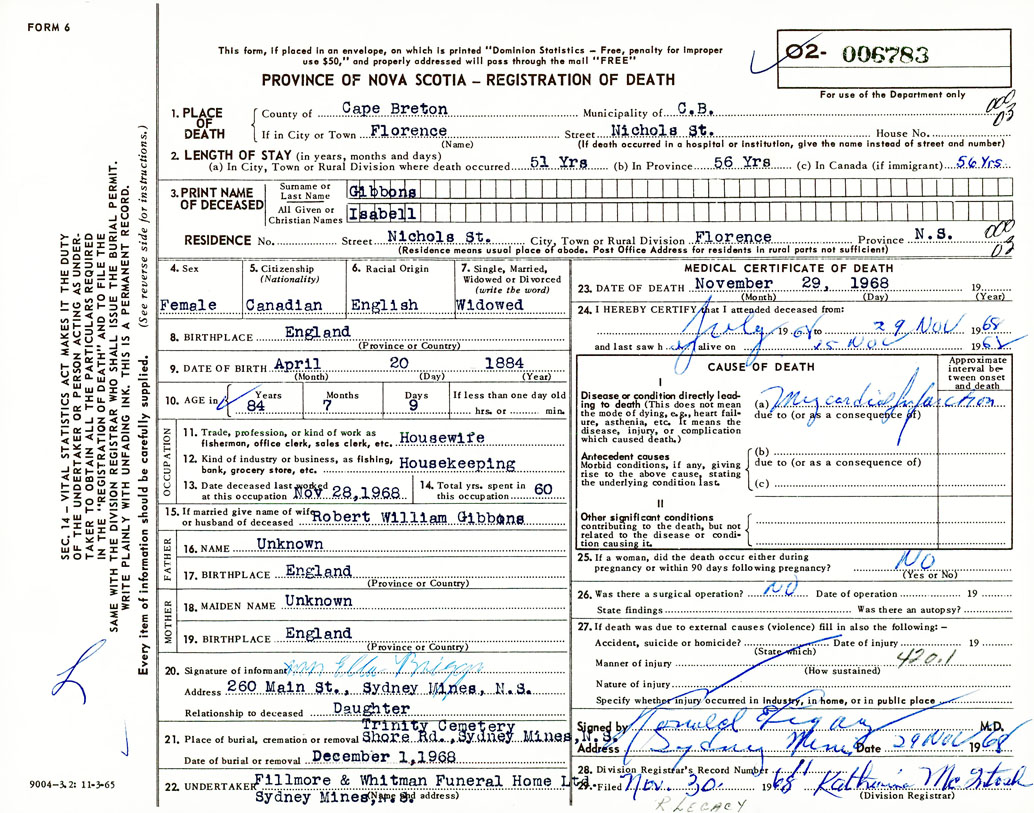 FORM 6
This form, if placed in an envelope, on which is printed "Dominion Statistics – Free, penalty for improper
use $50," and properly addressed will pass through the mail "FREE"
PROVINCE OF NOVA SCOTIA – REGISTRATION OF DEATH
02- 006783
For use of the Department only
1. PLACE OF DEATH
County of Cape Breton Municipality of C.B. 000
If in City or Town Florence Street Nichols St. House No. 03
(Name) (If death occurred in a hospital or institution, give the name instead of street and number)
2. LENGTH OF STAY (in years, months and days)
(a) In City, Town or Rural Division where death occurred 51 Yrs (b) In Province 56 Yrs (c) In Canada (if immigrant) 56 Yrs
3. PRINT NAME OF DECEASED
Surname or Last Name Gibbons
All Given or Christian Names Isabell
RESIDENCE No. Street Nichols St. City, Town or Rural Division Florence Province N.S. 000 03
(Residence means usual place of abode. Post Office Address for residents in rural parts not sufficient)
4. Sex
Female
5. Citizenship
(Nationality)
Canadian
6. Racial Origin
English
7. Single, Married,
Widowed or Divorced
(write the word)
Widowed
8. BIRTHPLACE England
(Province or Country)
9. DATE OF BIRTH April 20 1884
(Month) (Day) (Year)
10. AGE in
Years Months Days If less than one day old
84 7 9 hrs. or min.
OCCUPATION
11. Trade, profession, or kind of work as
fisherman, office clerk, sales clerk, etc. Housewife
12. Kind of industry or business, as fishing,
bank, grocery store, etc. Housekeeping
13. Date deceased last worked
at this occupation Nov 28,1968
14. Total yrs. spent in
this occupation 60
15. If married give name of wife
or husband of deceased Robert William Gibbons
FATHER
16. NAME Unknown
17. BIRTHPLACE England
(Province or Country)
MOTHER
18. MAIDEN NAME Unknown
19. BIRTHPLACE England
(Province or Country)
20. Signature of informant Mrs Ella Briggs
Address 260 Main St., Sydney Mines, N.S.
Relationship to deceased Daughter
Trinity Cemetery
21. Place of burial, cremation or removal Shore Rd., Sydney Mines, N.S.
Date of burial or removal December 1,1968
22. UNDERTAKER Fillmore & Whitman Funeral Home Ltd
Sydney Mines, N.S.
(Name and address)
MEDICAL CERTIFICATE OF DEATH
23. DATE OF DEATH November 29, 1968 19
(Month) (Day) (Year)
24. I HEREBY CERTIFY that I attended deceased from:
July 1968 to 29 Nov 1968
and last saw h alive on 25 Nov 1968
CAUSE OF DEATH
Approximate
interval be-
tween onset
and death
I
Disease or condition directly lead-
ing to death (This does not mean
the mode of dying, e.g., heart fail-
ure, asthenia, etc. It means the
disease, injury, or complication
which caused death.)
(a) Myocardial Infarction
due to (or as a consequence of)
Antecedent causes
Morbid conditions, if any, giving
rise to the above cause, stating
the underlying condition last.
(b)
due to (or as a consequence of)
(c)
II
Other significant conditions
contributing to the death, but not
related to the disease or condi-
tion causing it.
25. If a woman, did the death occur either during
pregnancy or within 90 days following pregnancy? NO
(Yes or No)
26. Was there a surgical operation? NO Date of operation 19
State findings Was there an autopsy?
27. If death was due to external causes (violence) fill in also the following: –
Accident, suicide or homicide? Date of injury 19
(State which)
Manner of injury 420.1
(How sustained)
Nature of injury
Specify whether injury occurred in industry, in home, or in public place
Signed by M.D.
Address Sydney Mines Date 29 Nov 1968
28. Division Registrar's Record Number
29. Filed Nov. 30 1968 Katharine McIntosh
(Division Registrar)
R LEGACY
SEC. 14 – VITAL STATISTICS ACT MAKES IT THE DUTY
OF THE UNDERTAKER OR PERSON ACTING AS UNDER-
TAKER TO OBTAIN ALL THE PARTICULARS REQUIRED
IN THE "REGISTRATION OF DEATH" AND TO FILE THE
SAME WITH THE DIVISION REGISTRAR WHO SHALL ISSUE THE BURIAL PERMIT.
WRITE PLAINLY WITH UNFADING INK. THIS IS A PERMANENT RECORD.
Every item of information should be carefully supplied. (See reverse side for instructions.)
9004–3.2: 11-3-65